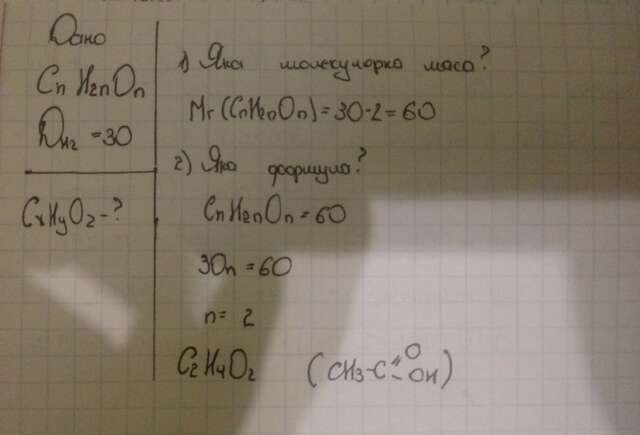 Дано
CnH2nOn
DH2 = 30
CxHyOz - ?
1) Яка молекулярна маса?
Mr(CnH2nOn) = 30·2 = 60
2) Яка формула?
CnH2nOn = 60
30n = 60
n = 2
C2H4O2 (CH3-C=O -OH)